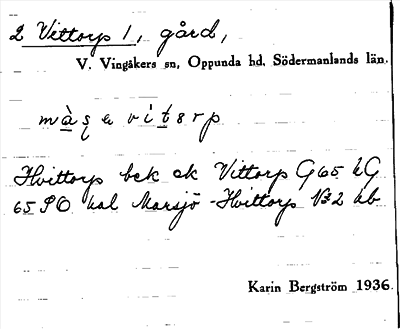 2 Vittorp 1, gård,
V. Vingåkers sn, Oppunda hd, Södermanlands län.
Hvittorp bek ek Vittorp G65 kG
65 SO kal Marsjö - Hvittorp
Karin Bergström 1936.